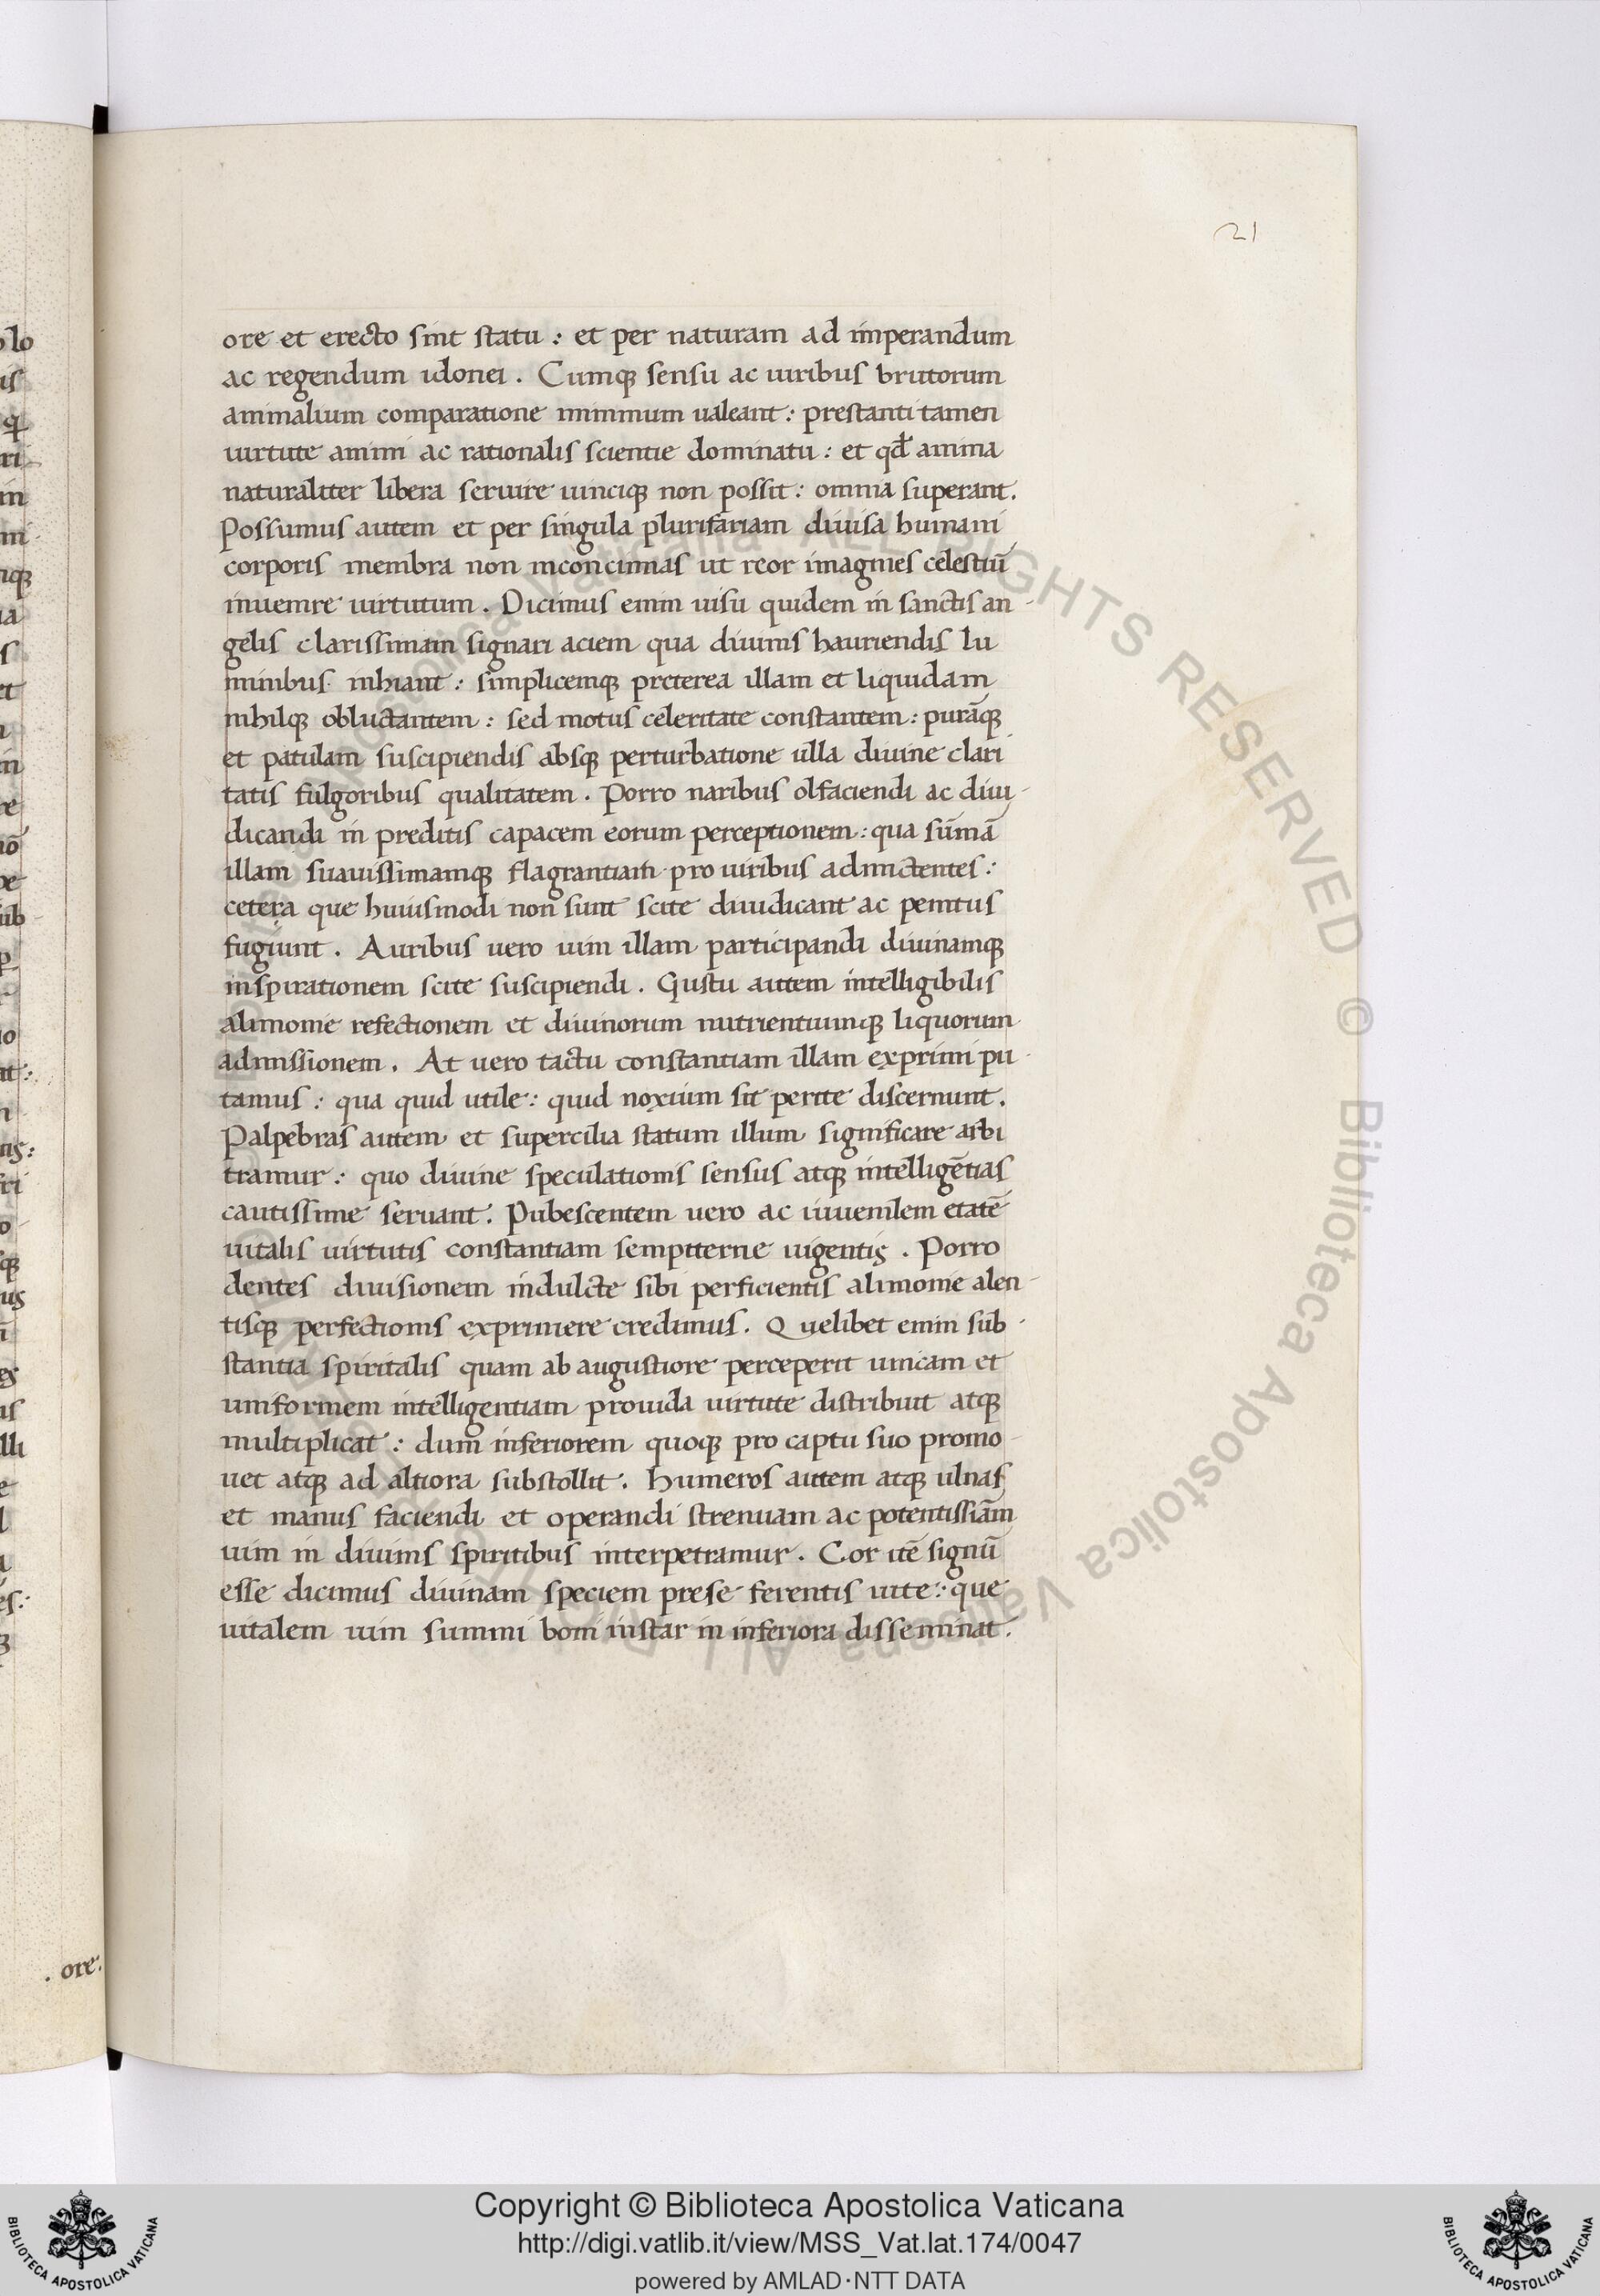 21
ore et erecto sint statu : et per naturam ad imperandum
ac regendum idonei . Cumqꝫ sensu ac uiribus brutorum
animalium comparatione minimum ualeant : prestanti tamen
uirtute animi ac rationalis scientie dominatu : et qđ anima
naturaliter libera seruire uinciqꝫ non possit : omnia superant .
Possumus autem et per singula plurifariam diuisa humani
corporis membra non inconcinnas ut reor imagines celestiū
inuenire uirtutum . Dicimus enim uisu quidem in sanctis an-
gelis clarissimam signari aciem qua diuinis hauriendis lu
minibus inhiant : simplicemqꝫ preterea illam et liquidam
nihilqꝫ obluctantem : sed motus celeritate constantem : purāqꝫ
et patulam suscipiendis absqꝫ perturbatione ulla diuine clari
tatis fulgoribus qualitatem . Porro naribus olfaciendi ac diiu-
dicandi in preditis capacem eorum perceptionem : qua sūmā
illam suauissimamqꝫ flagrantiam pro uiribus admictentes :
cetera que huiusmodi non sunt scite diiudicant ac penitus
fugiunt . Auribus uero uim illam participandi diuinamqꝫ
inspirationem scite suscipiendi . Gustu autem intelligibilis
alimonie refectionem et diuinorum nutrientiumqꝫ liquorum
admissionem . At uero tactu constantiam illam exprimi pu-
tamus : qua quid utile : quid noxium sit perite discernunt .
Palpebras autem et supercilia statum illum significare arbi
tramur : quo diuine speculationis sensus atqꝫ intelligētias
cautissime seruant . Pubescentem uero ac iuuenilem etatē
uitalis uirtutis constantiam sempiterne uigentis . Porro
dentes diuisionem indulcte sibi perficientis alimonie alen-
tisqꝫ perfectionis exprimere credimus . Quelibet enim sub-
stantia spiritalis quam ab augustiore perceperit unicam et
uniformem intelligentiam prouida uirtute distribuit atqꝫ
multiplicat : dum inferiorem quoqꝫ pro captu suo promo-
uet atqꝫ ad altiora substollit . humeros autem atqꝫ ulnas
et manus faciendi et operandi strenuam ac potentissiām
uim in diuinis spiritibus interpetramur . Cor itē signū
esse dicimus diuinam speciem prese ferentis uite : que
uitalem uim summi boni instar in inferiora disseminat .
. ore .
Copyright © Biblioteca Apostolica Vaticana
http://digi.vatlib.it/view/MSS_Vat.lat.174/0047
powered by AMLAD·NTT DATA
BIBLIOTECA APOSTOLICA VATICANA
BIBLIOTECA APOSTOLICA VATICANA